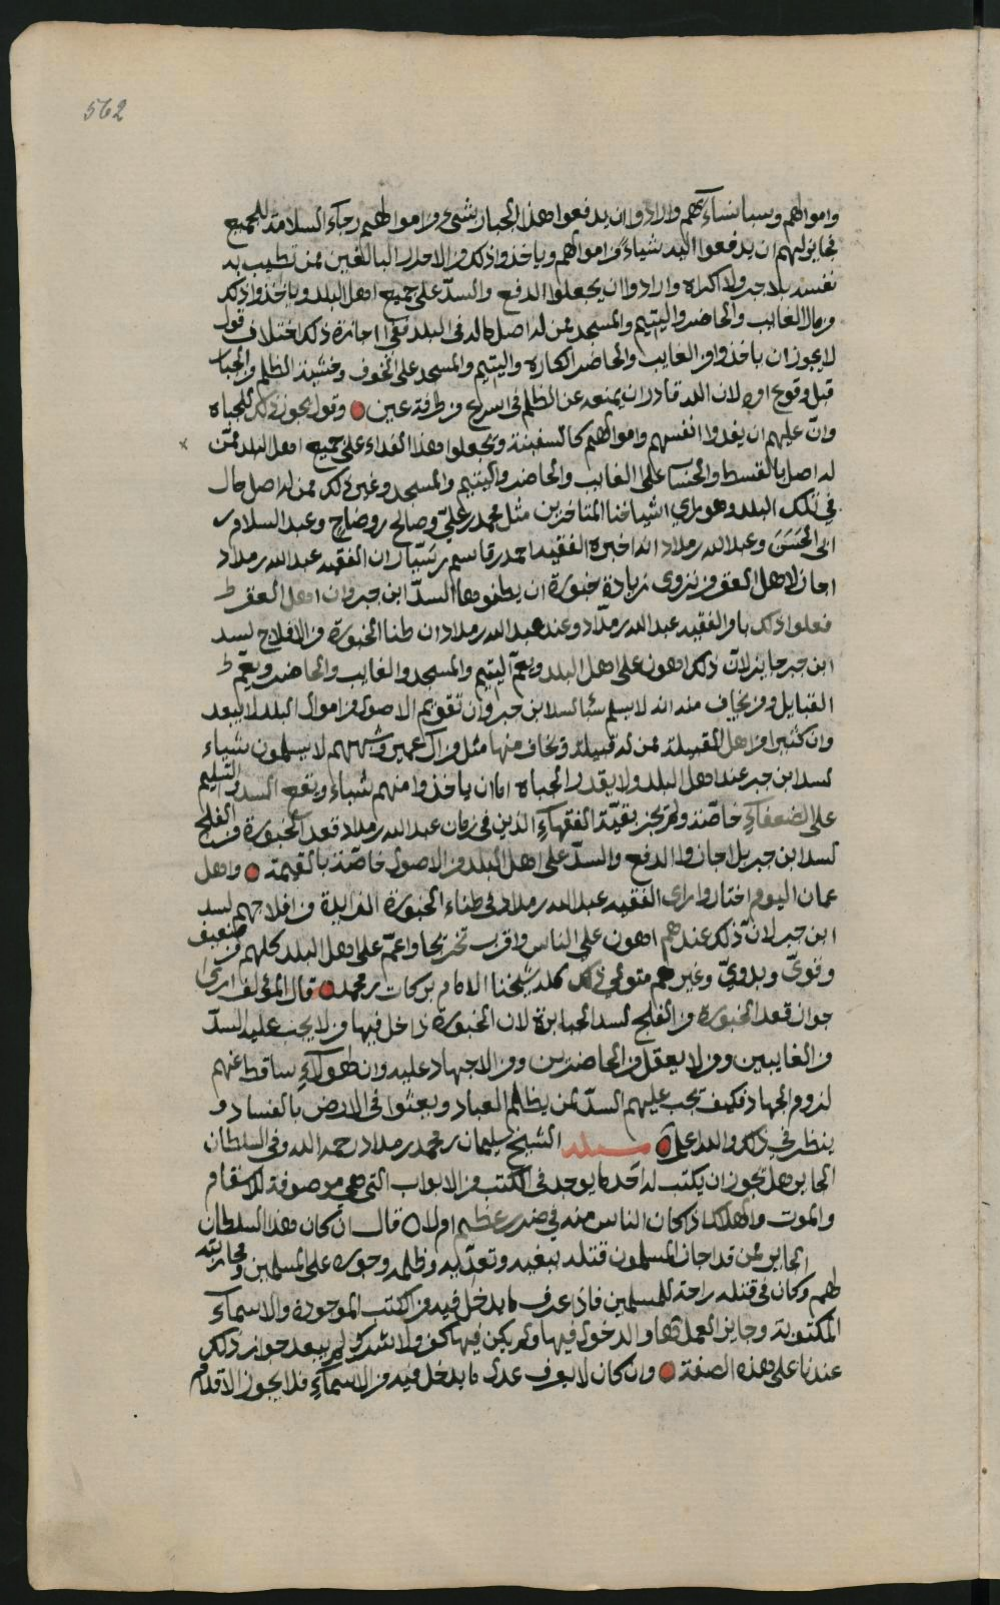 562
واموالهم وسبا نساءهم وارادوا ان يدفعوا هذا الجبار بشيء من اموالهم رجاء السلامة للجميع
فجايز لهم ان يدفعوا اليه شياء من اموالهم وياخذوا ذلك من الاحرار البالغين ممن تطيب به
نفسه بلا جبر ولا اكراه وارادوا ان يجعلوا الدفع والسد على جميع اهل البلد وياخذوا ذلك
من مال الغايب والحاضر واليتيم والمسجد ممن له اصل مال في البلد ففي اجازة ذلك اختلاف قول
لا يجوز ان ياخذوا من الغايب والحاضر الكاره واليتيم والمسجد على الخوف وخشية الظلم من الجبار
قبل وقوع امره لان الله قادر ان يمنعه عن الظلم في اسرع من طرفة عين وقول يجوز ذلك للجباه
وان عليهم ان يفدوا انفسهم واموالهم كالسفينة ويجعلوا هذا الفداء على جميع اهل البلد ممن
له اصل بالقسط والحساب على الغايب والحاضر واليتيم والمسجد وغير ذلك ممن له اصل مال
في تلك البلد وهو راي اشياخنا المتاخرين مثل محمد بن علي وصالح بن وضاح وعبد السلام بن
ابي الحسن وعبد الله بن مداد انه اخبره الفقيه احمد بن قاسم بن سيار ان الفقيه عبد الله بن مداد
اجاز لاهل العقر من نزوى زيادة خبورة ان يطنوها لسد ابن جبر وان اهل العقر
فعلوا ذلك بامر الفقيه عبد الله بن مداد وعند عبد الله بن مداد ان طنا الخبورة من الافلاج لسد
ابن جبر جايز لان ذلك اهون على اهل البلد ويعم اليتيم والمسجد والغايب والحاضر ويعم
القبايل ومن يخاف منه انه لا يسلم شيا لسد ابن جبر وان تقويم الاصول من اموال البلد لا يبعد
وان كثيرا من اهل القبيلة ممن له قبيلة ويخاف منها مثل من آل عمير وشبههم لا يسلمون شياء
لسد ابن جبر عند اهل البلد ولا يقدر الجباه ان ياخذوا منهم شياء ويقع السد والتسليم
على الضعفاء خاصة ولم يجز بقية الفقهاء الذين في زمان عبد الله بن مداد قعد الخبورة من الفلج
لسد ابن جبر بل اجازوا الدفع والسد على اهل البلد من الاصول خاصة بالقيمة واهل
عمان اليوم اختاروا راي الفقيه عبد الله بن مداد في طناء الخبورة الزايدة من افلاجهم لسد
ابن جبر لان ذلك عندهم اهون على الناس واقرب تخريجا واعم على اهل البلد كلهم من ضعيف
وقوي وبدوي وغيرهم متولي ذلك كله شيخنا الامام بركات بن محمد قال المؤلف ارى
جواز قعد الخبورة من الفلج لسد الجبابرة لان الخبورة داخل فيها من لا يجب عليه السد
من الغايبين ومن لا يعقل من الحاضرين ومن لا جهاد عليه وان هؤلاء ساقط عنهم
لزوم الجهاد فكيف تجب عليهم السد لمن يظلم العباد ويعثوا في الارض بالفساد و
ينظر في ذلك والله اعلم مسئله الشيخ سليمان بن محمد بن مداد رحمه الله وفي السلطان
الجاير هل يجوز ان يكتب له احد ما يوجد في الكتب من الابواب التي هي موصوفة للاسقام
والموت والهلاك اذا كان الناس منه في ضرر عظيم ام لا قال ان كان هذا السلطان
الجاير ممن قد اجاز المسلمون قتله ببغيه وتعديه وظلمه وجوره على المسلمين ومحاربته
لهم وكان في قتله راحة للمسلمين فاذا عرف ما يدخل فيه من الكتب الموجودة والاسماء
المكتوبة وجايز العمل بها والدخول فيها ولم يكن فيها كفر ولا شرك لم يبعد جواز ذلك
عندنا على هذه الصفة وان كان لا يعرف عدل ما يدخل فيه من الاسماء فلا يجوز الاقدام